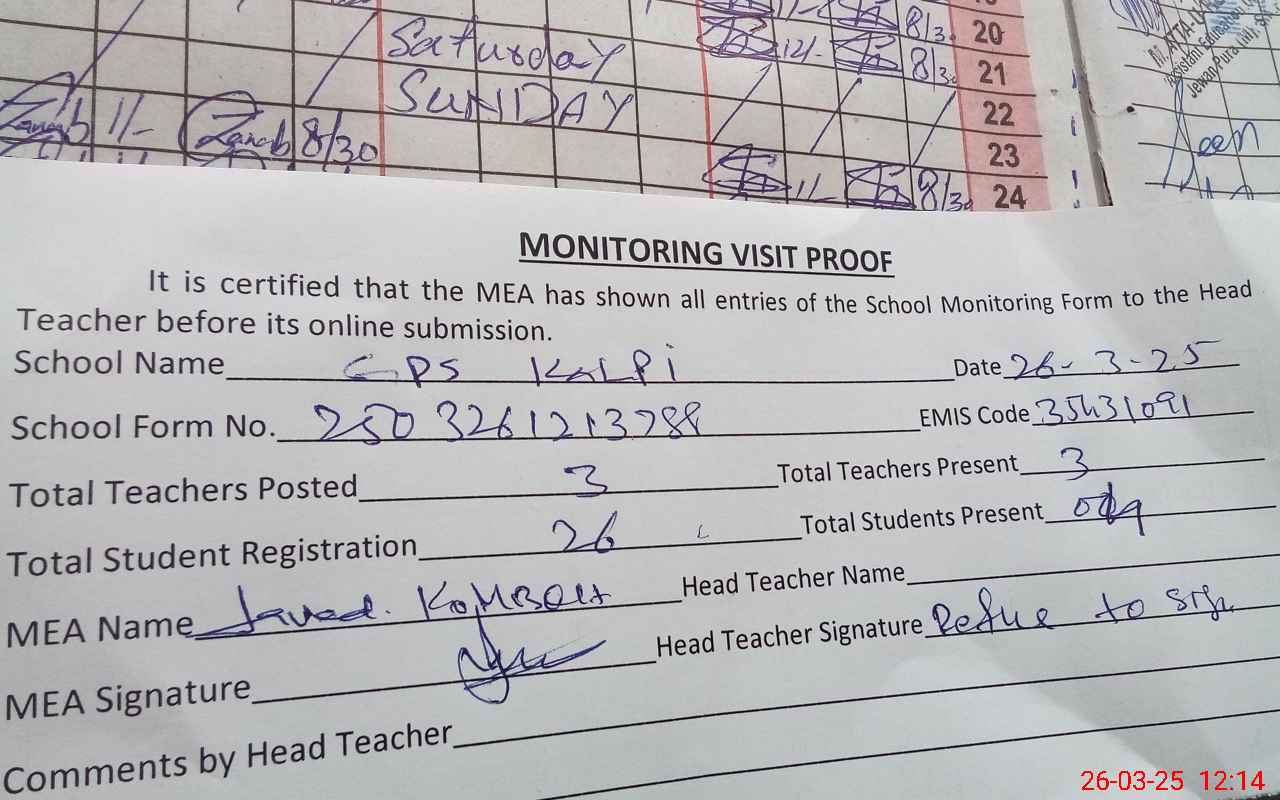 Saturday 12/- 8/30 20
SUNDAY 8/30 21
22
Zanab 1/- Zanab 8/30 23
11/- 8/30 24
M. ATTA-U
Assistant Education
Jewan Pura
Seen
MONITORING VISIT PROOF
It is certified that the MEA has shown all entries of the School Monitoring Form to the Head
Teacher before its online submission.
School Name GPS KALPI Date 26-3-25
School Form No. 2503261213288 EMIS Code 35431091
Total Teachers Posted 3 Total Teachers Present 3
Total Student Registration 26 Total Students Present
MEA Name Javed. KAMBOH Head Teacher Name
MEA Signature Head Teacher Signature Refuse to sign
Comments by Head Teacher
26-03-25 12:14